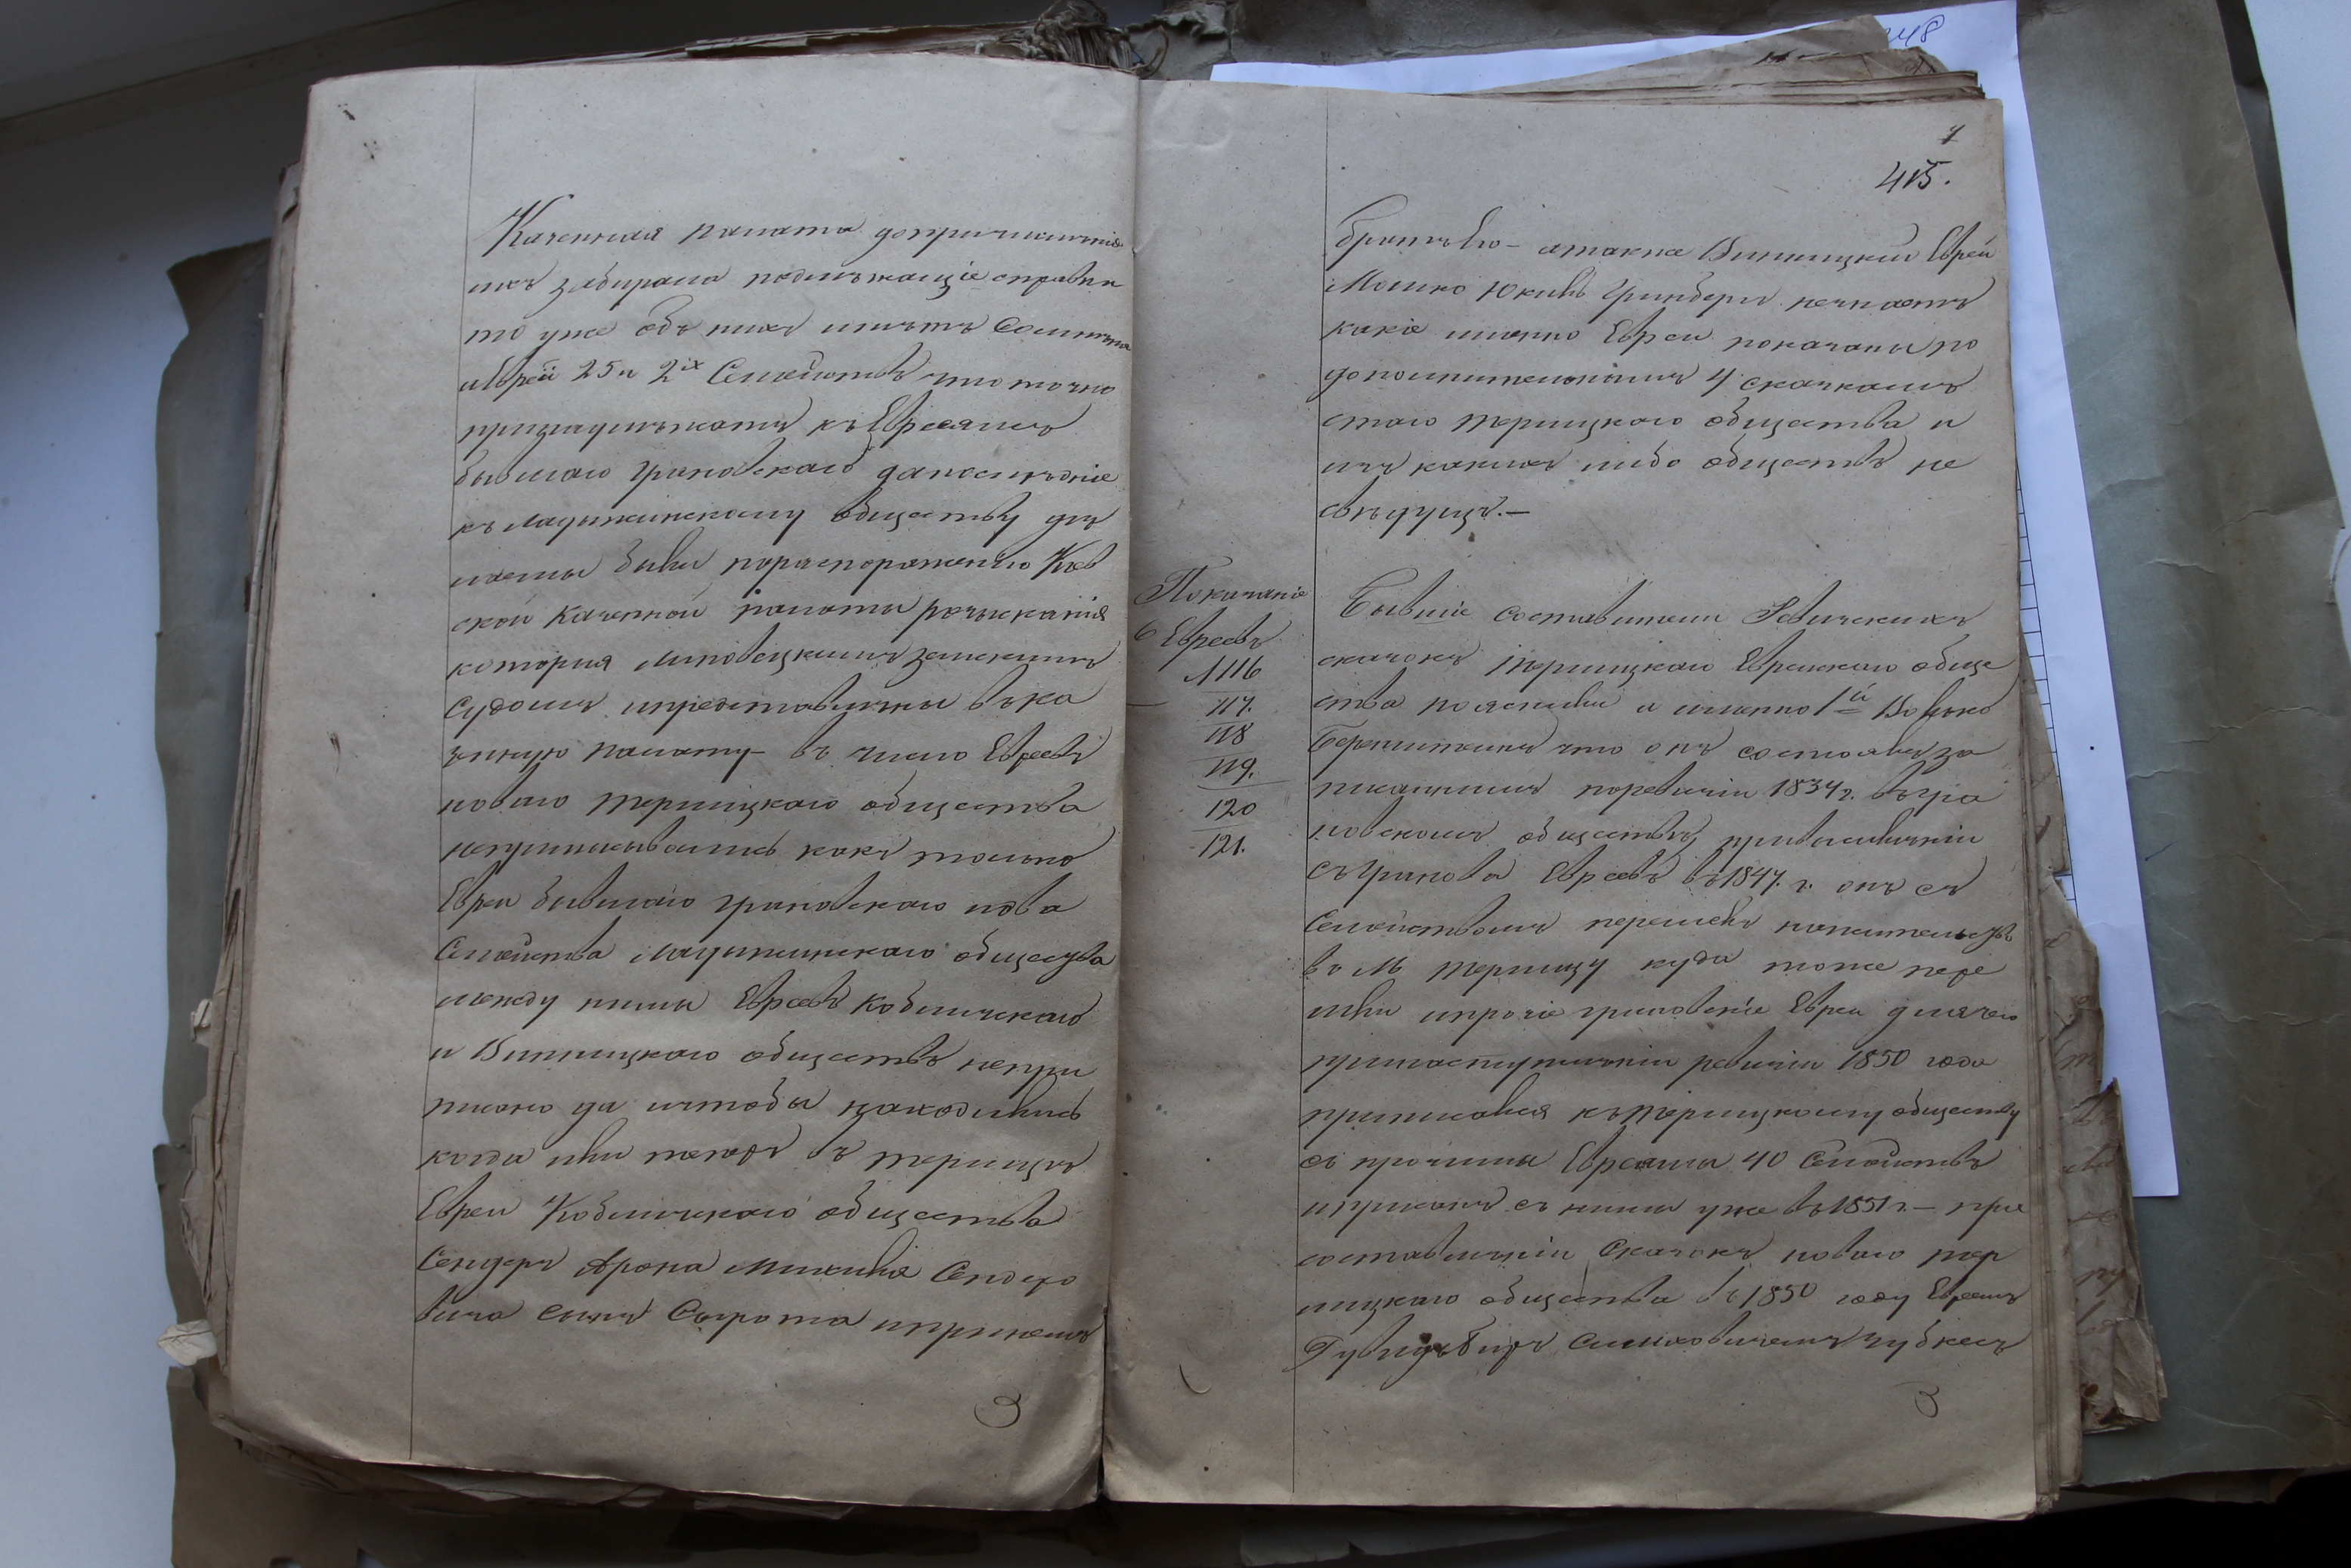 Казенная палата допричисленія
ихъ забирала надлежащіе справки
то уже объ нихъ имѣть
еврей 25 и 2ихъ Семействъ что точно
принадлежатъ къ Евреямъ
бывшаго Грановскаго
къ Ладыжинскому обществу
были по распоряженію Кіев
ской Казенной палаты розысканія
которыя Липовецкимъ земскимъ
Судомъ и представлены въ ка
зенную палату въ число Евреевъ
новаго Терлицкаго общества
неприписывались какъ только
Евреи бывшаго Грановскаго и два
Семейства Ладыжинскаго общества
между ними Евреевъ Кобличскаго
и Винницкаго обществъ непри
писано да и чтобы находились
когда или теперь въ Терлицѣ
Евреи Кобличскаго общества
Сендеръ Арона Сендеро
вича сынъ Сирота
7
415.
братъ Его – а также Винницкій Еврей
Мошко Юкив Гринбергъ незнаетъ
какіе именно Евреи показаны по
дополнительнымъ 4 сказкамъ
стаго Терлицкаго общества и
изъ какихъ либо обществъ не
свѣдущъ. –
Показаніе
6 Евреевъ
116
117.
118
119.
120
121.
Бывшіе составители Ревизскихъ
сказокъ Терлицкаго Еврейскаго обще
ства пояснили а именно 1й Волько
Беренштейнъ что онъ состоялъ за
писаннымъ по ревизіи 1834 г. въ Гра
новскомъ обществѣ, при высиленіи
съ Гранова Евреевъ въ 1847. г. онъ съ
Семействомъ перешелъ нажительство
въ М Терлицу куда тоже пере
шли и прочіе грановскіе Евреи для чего
при наступленіи ревизіи 1850 года
приписался къ Терлицкому обществу
съ прочими Евреями 40 Семействъ
съ ними уже въ 1851 г. – при
составленіи Сказокъ новаго тер
лицкаго общества въ 1850 году Евреемъ